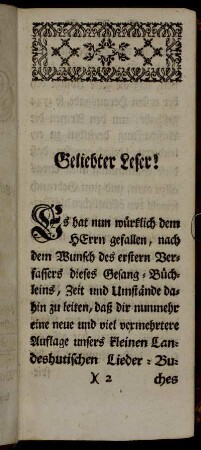 Geliebter Leser!
Es hat nun würklich dem
HErrn gefallen, nach
dem Wunsch des erstern Ver-
fassers dieses Gesang-Büch-
leins, Zeit und Umstände da-
hin zu leiten, daß dir nunmehr
eine neue und viel vermehrtere
Auflage unsers kleinen Lan-
deshutischen Lieder-Bu-
)( 2 ches